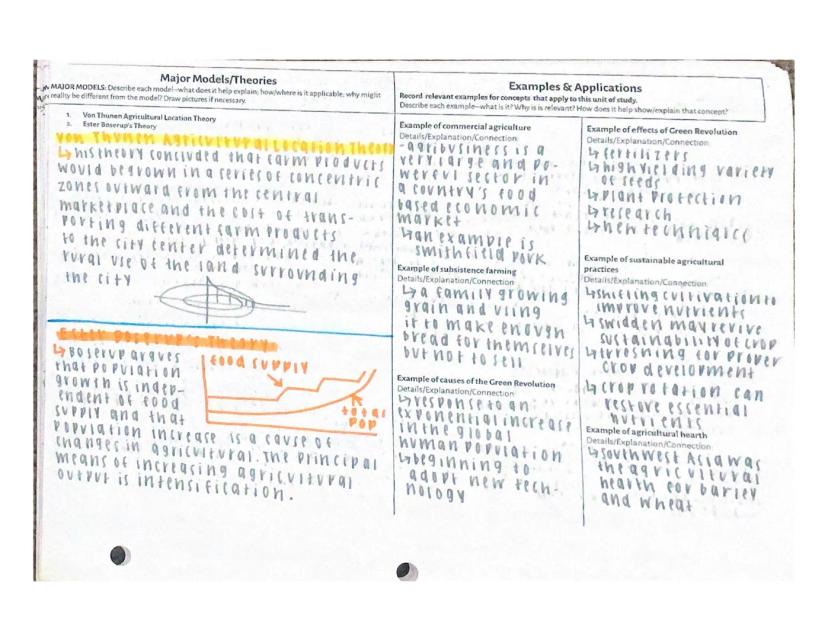 Major Models/Theories
MAJOR MODELS: Describe each model—what does it help explain; how/where is it applicable; why might
reality be different from the model? Draw pictures if necessary.
1. Von Thunen Agricultural Location Theory
2. Ester Boserup's Theory
Von Thunen Agricultural Location Theory
↳ his theory concluded that farm products
would be grown in a series of concentric
zones outward from the central
marketplace and the cost of trans-
porting different farm products
to the city center determined the
rural use of the land surrounding
the city
Ester Boserup's Theory
↳ Boserup argues
that population
growth is indep-
endent of food
supply and that
population increase is a cause of
changes in agricultural. The principal
means of increasing agricultural
output is intensification.
food supply
total
pop
Examples & Applications
Record relevant examples for concepts that apply to this unit of study.
Describe each example—what is it? Why is is relevant? How does it help show/explain that concept?
Example of commercial agriculture
Details/Explanation/Connection
-agribusiness is a
very large and po-
werful sector in
a country's food
based economic
market
↳ an example is
smithfield pork
Example of subsistence farming
Details/Explanation/Connection:
↳ a family growing
grain and using
it to make enough
bread for themselves
but not to sell
Example of causes of the Green Revolution
Details/Explanation/Connection:
↳ response to an
exponential increase
in the global
human population
↳ beginning to
adopt new tech-
nology
Example of effects of Green Revolution
Details/Explanation/Connection:
↳ fertilizers
↳ high yielding variety
of seeds
↳ plant protection
↳ research
↳ new
Example of sustainable agricultural
practices
Details/Explanation/Connection:
↳ shifting cultivation to
improve nutrients
↳ swidden may revive
sustainability of crop
↳ for proper
crop development
↳ crop rotation can
restore essential
nutrients
Example of agricultural hearth
Details/Explanation/Connection:
↳ southwest Asia was
the agricultural
hearth for barley
and wheat